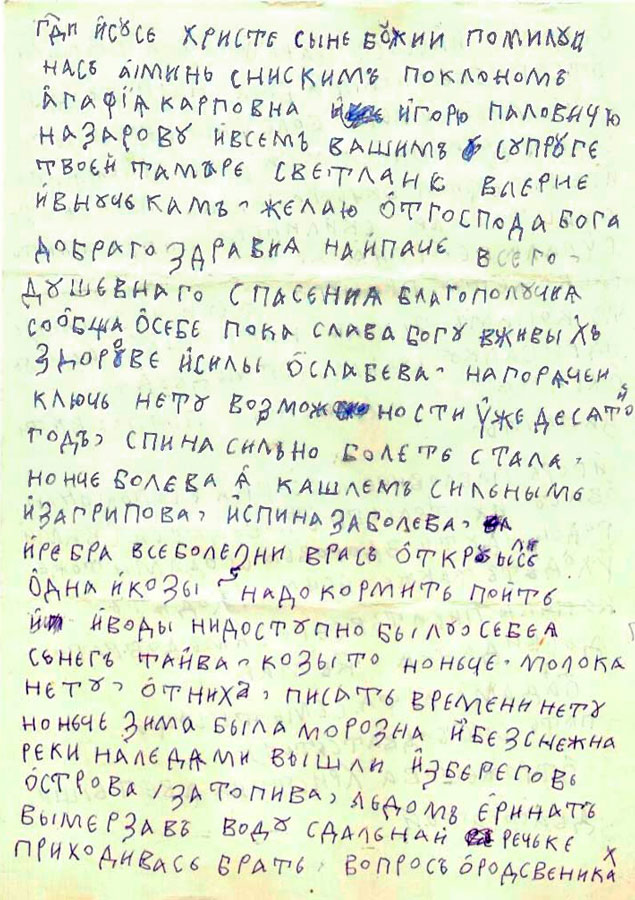 гди исусе христе сыне божии помилуи
насъ аминь снискимъ поклономъ
агафія карповна игорю паловичю
назарову ивсемъ вашимъ супруге
твоей тамаре светлане валерие
ивнучекамъ, желаю отгоспода бога
добраго здравия наипаче всего,
душевнаго спасения благополучия
сообща осебе пока слава богу вживыхъ
здорове исилы ослабева, нагорячеи
ключь нету возможности уже десятои
годъ, спина сильно болеть стала,
нонче болева я кашлемъ сильнымь
изагрипова, испина заболева,
иребра всеболезни врасъ открылись
одна икозы надокормить поить
иводы нидоступно былосебея
сьнегъ таива, козыто ноньче, молока
нету, отниха, писать времени нету
ноньче зима была морозна ибезснежна
реки наледями вышли изберговь
острова, затопива, льдомъ еринатъ
вымерзавъ воду сдальнаи речьке
приходивась брать, вопросъ ородсвениках